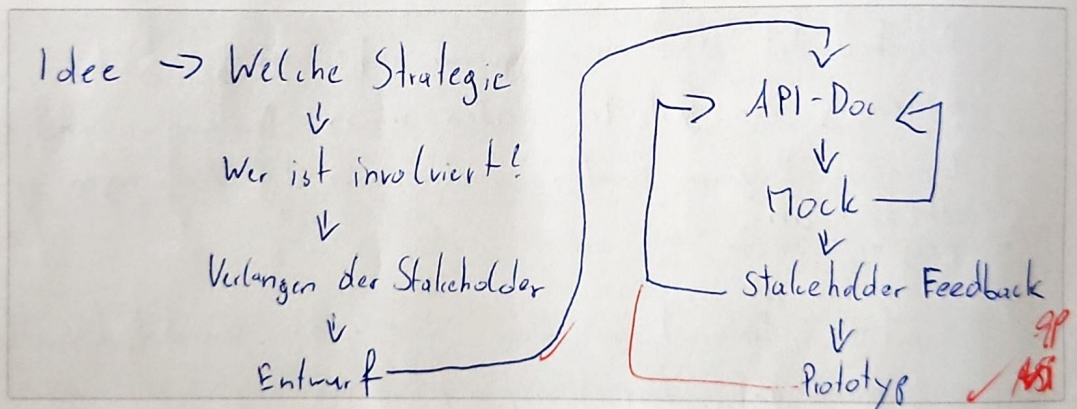 Idee → Welche Strategie
↓
Wer ist involviert?
↓
Verlangen der Stakeholder
↓
Entwurf
↓
API-Doc
↓
Mock
↓
Stakeholder Feedback
↓
Prototyp